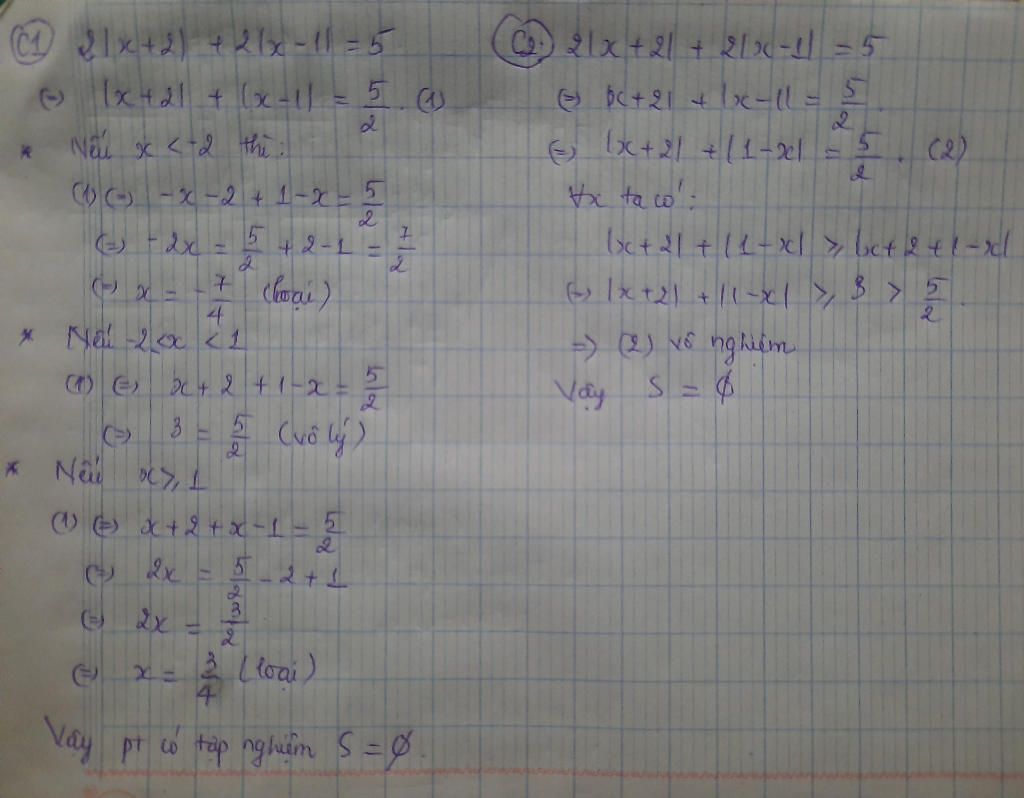 C1 2|x+2| + 2|x-1| = 5
(=) |x+2| + |x-1| = 5/2. (1)
* Nếu x < -2 thì:
(1) (=) -x-2 + 1-x = 5/2
(=) -2x = 5/2 + 2-1 = 7/2
(=) x = -7/4 (loại)
* Nếu -2 ≤ x < 1
(1) (=) x+2 + 1-x = 5/2
(=) 3 = 5/2 (vô lý)
* Nếu x ≥ 1
(1) (=) x+2+x-1 = 5/2
(=) 2x = 5/2 - 2 + 1
(=) 2x = 3/2
(=) x = 3/4 (loại)
Vậy pt có tập nghiệm S = ∅.
C2. 2|x+2| + 2|x-1| = 5
(=) |x+2| + |x-1| = 5/2.
(=) |x+2| + |1-x| = 5/2. (2)
∀x ta có:
|x+2| + |1-x| ≥ |x+2+1-x|
(=) |x+2| + |1-x| ≥ 3 > 5/2.
=> (2) vô nghiệm
Vậy S = ∅